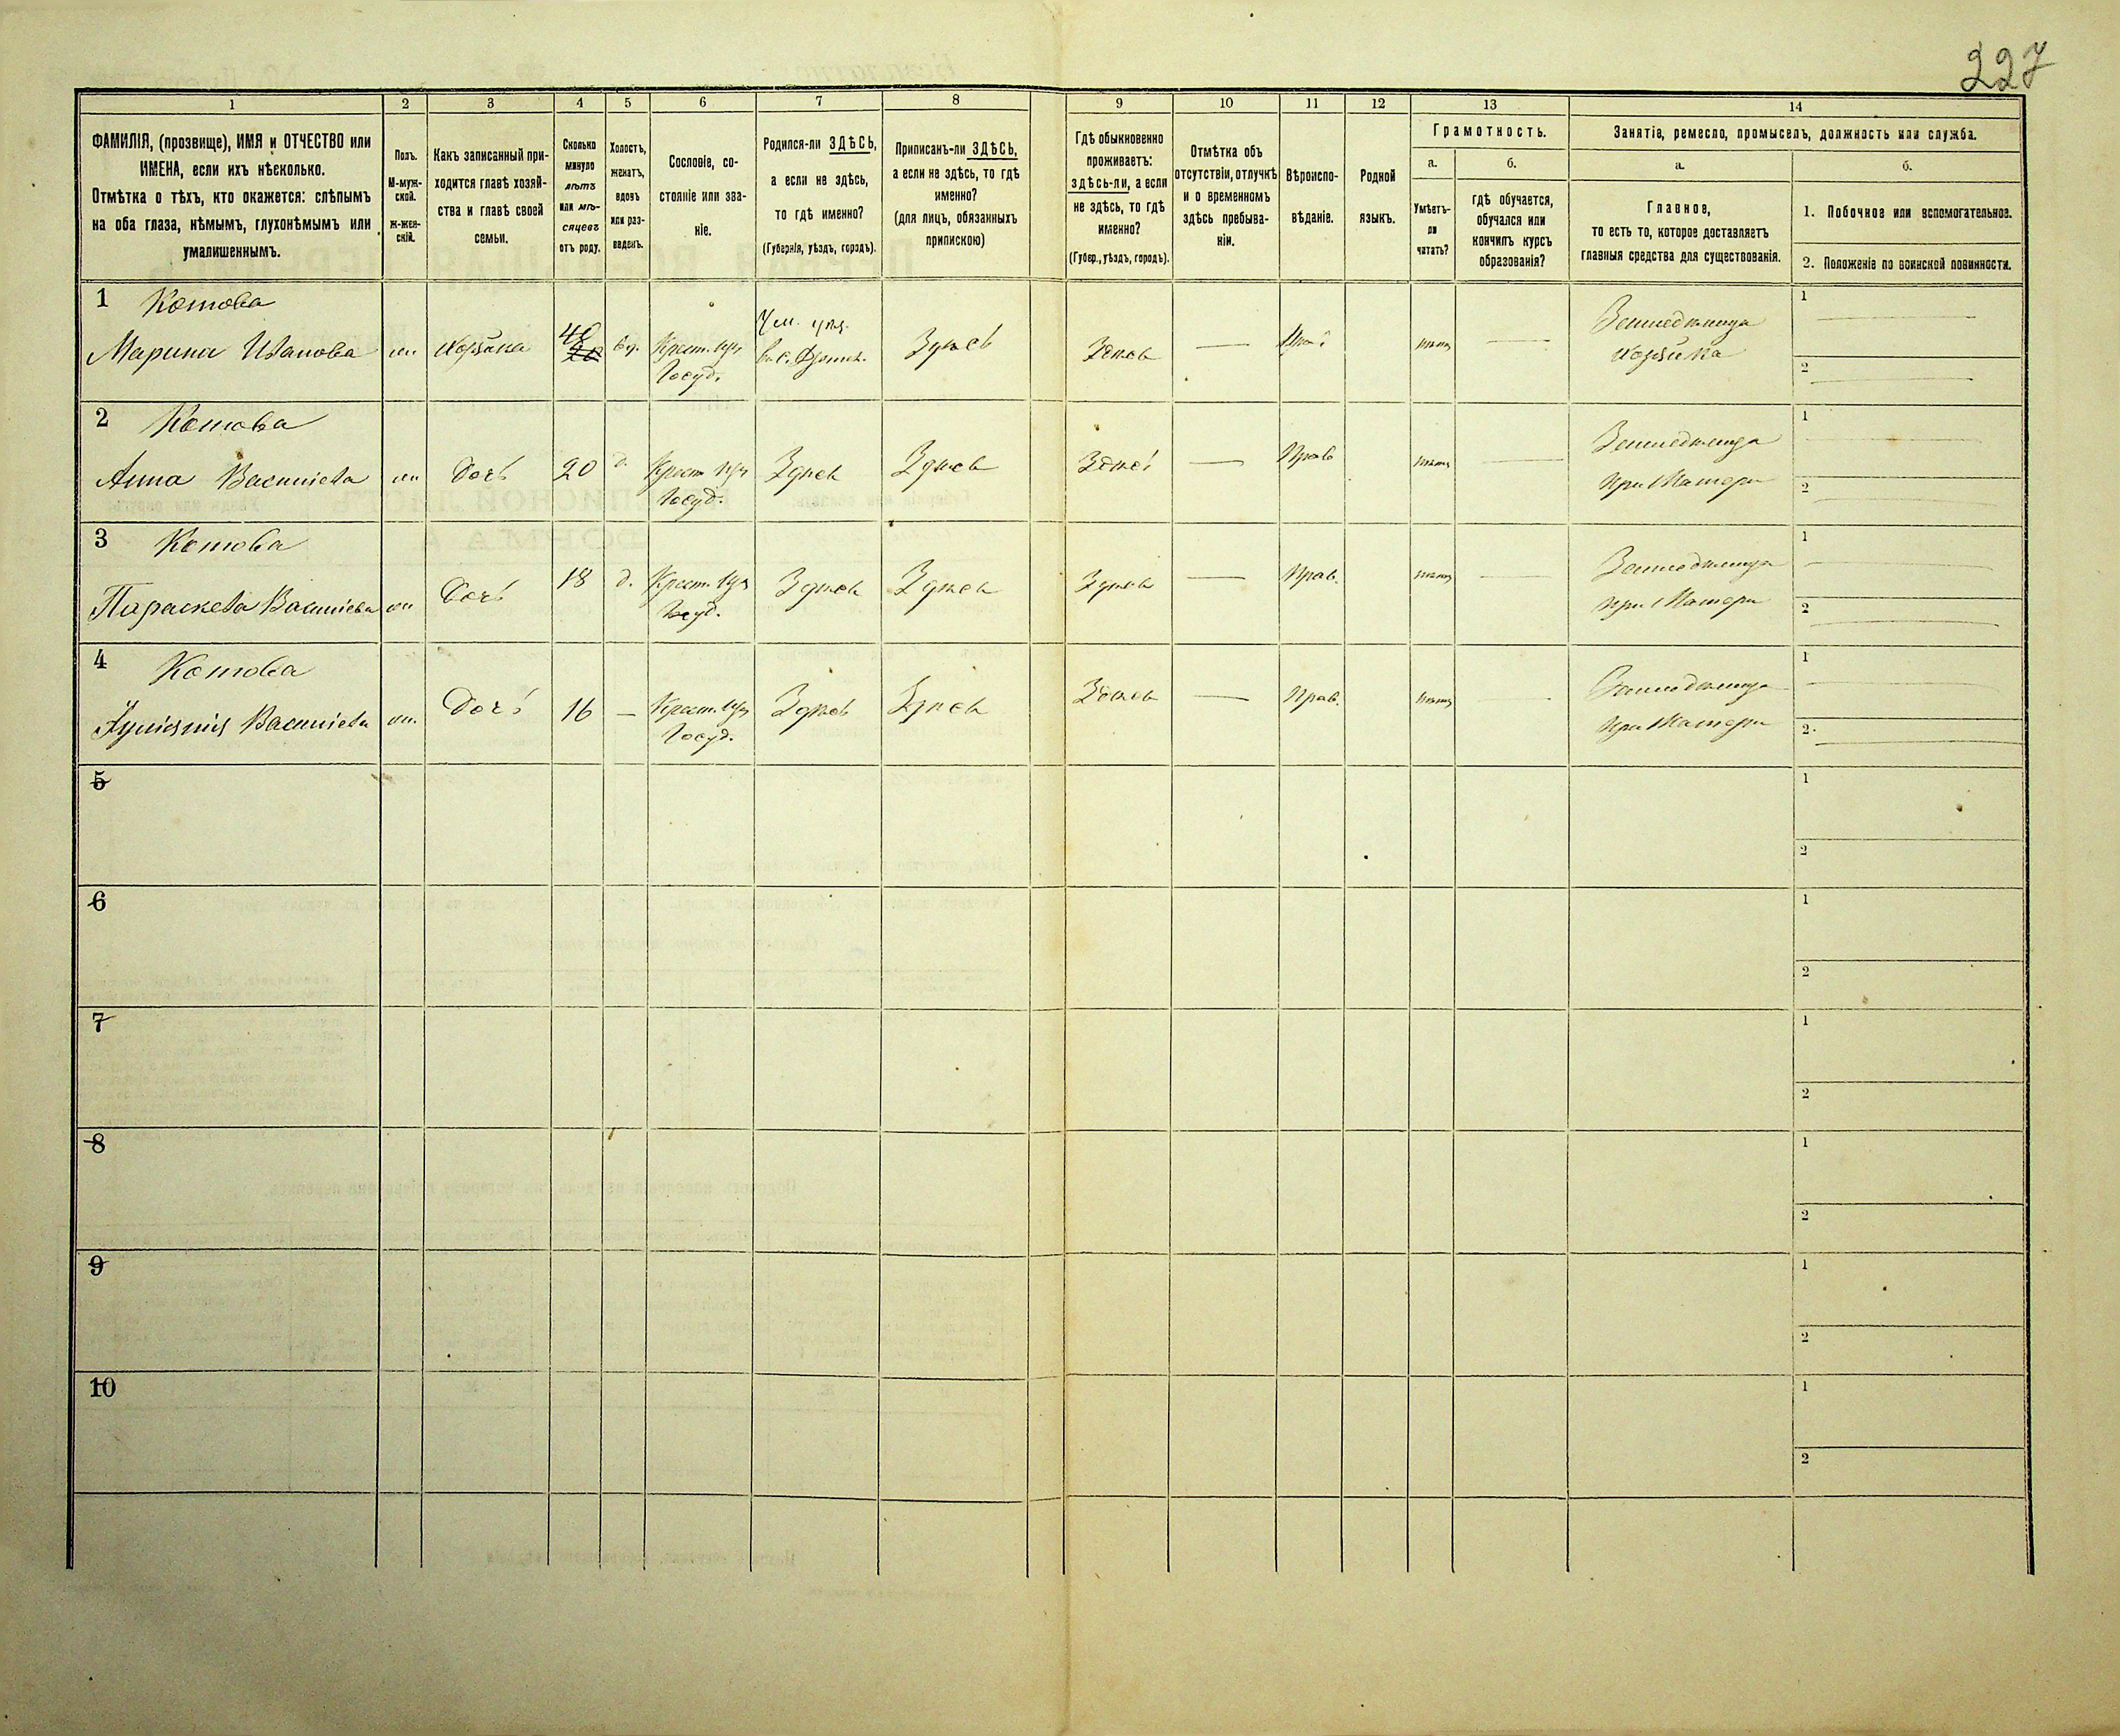 227
1 2 3 4 5 6 7 8 9 10 11 12 13 14
ФАМИЛІЯ, (прозвище), ИМЯ и ОТЧЕСТВО или
ИМЕНА, если ихъ нѣсколько.
Отмѣтка о тѣхъ, кто окажется: слѣпымъ
на оба глаза, нѣмымъ, глухонѣмымъ или
умалишеннымъ.
Полъ.
М-муж-
ской.
Ж-жен-
скій.
Какъ записанный при-
ходится главѣ хозяй-
ства и главѣ своей
семьи.
Сколько
минуло
лѣтъ
или мѣ-
сяцевъ
отъ роду.
Холостъ,
женатъ,
вдовъ
или раз-
веденъ.
Сословіе, со-
стояніе или зва-
ніе.
Родился-ли ЗДѢСЬ,
а если не здѣсь,
то гдѣ именно?
(Губернія, уѣздъ, городъ).
Приписанъ-ли ЗДѢСЬ,
а если не здѣсь, то гдѣ
именно?
(для лицъ, обязанныхъ
припискою)
Гдѣ обыкновенно
проживаетъ:
здѣсь-ли, а если
не здѣсь, то гдѣ
именно?
(Губер., уѣздъ, городъ).
Отмѣтка объ
отсутствіи, отлучкѣ
и о временномъ
здѣсь пребыва-
ніи.
Вѣроиспо-
вѣданіе.
Родной
языкъ.
Грамотность.
а.
Умѣетъ-
ли
читать?
б.
гдѣ обучается,
обучался или
кончилъ курсъ
образованія?
Занятіе, ремесло, промыселъ, должность или служба.
а.
Главное,
то есть то, которое доставляетъ
главныя средства для существованія.
б.
1. Побочное или вспомогательное.
2. Положеніе по воинской повинности.
1 Котова
Марина Иванова
ж
хозяйка
48
вд.
Крест. изъ
Госуд.
Здѣсь
Здѣсь
—
Прав
нѣтъ
Земледѣлица
хозяйка
1 —
2 —
2 Котова
Анна Васильева
ж
дочь
20
д.
Крест изъ
Госуд.
Здѣсь
Здѣсь
Здѣсь
—
Прав
нѣтъ
—
Земледѣлица
при Матери
1 —
2 —
3 Котова
Параскева Васильева
ж
дочь
18
д.
Крест. изъ
Госуд.
Здѣсь
Здѣсь
Здѣсь
—
Прав.
нѣтъ
—
Земледѣлица
при Матери
1 —
2 —
4 Котова
Васильева
ж.
дочь
16
—
Крест. изъ
Госуд.
Здѣсь
Здѣсь
Здѣсь
—
Прав.
нѣтъ
—
Земледѣлица
при Матери
1 —
2 —
5
1
2
6
1
2
7
1
2
8
1
2
9
1
2
10
1
2